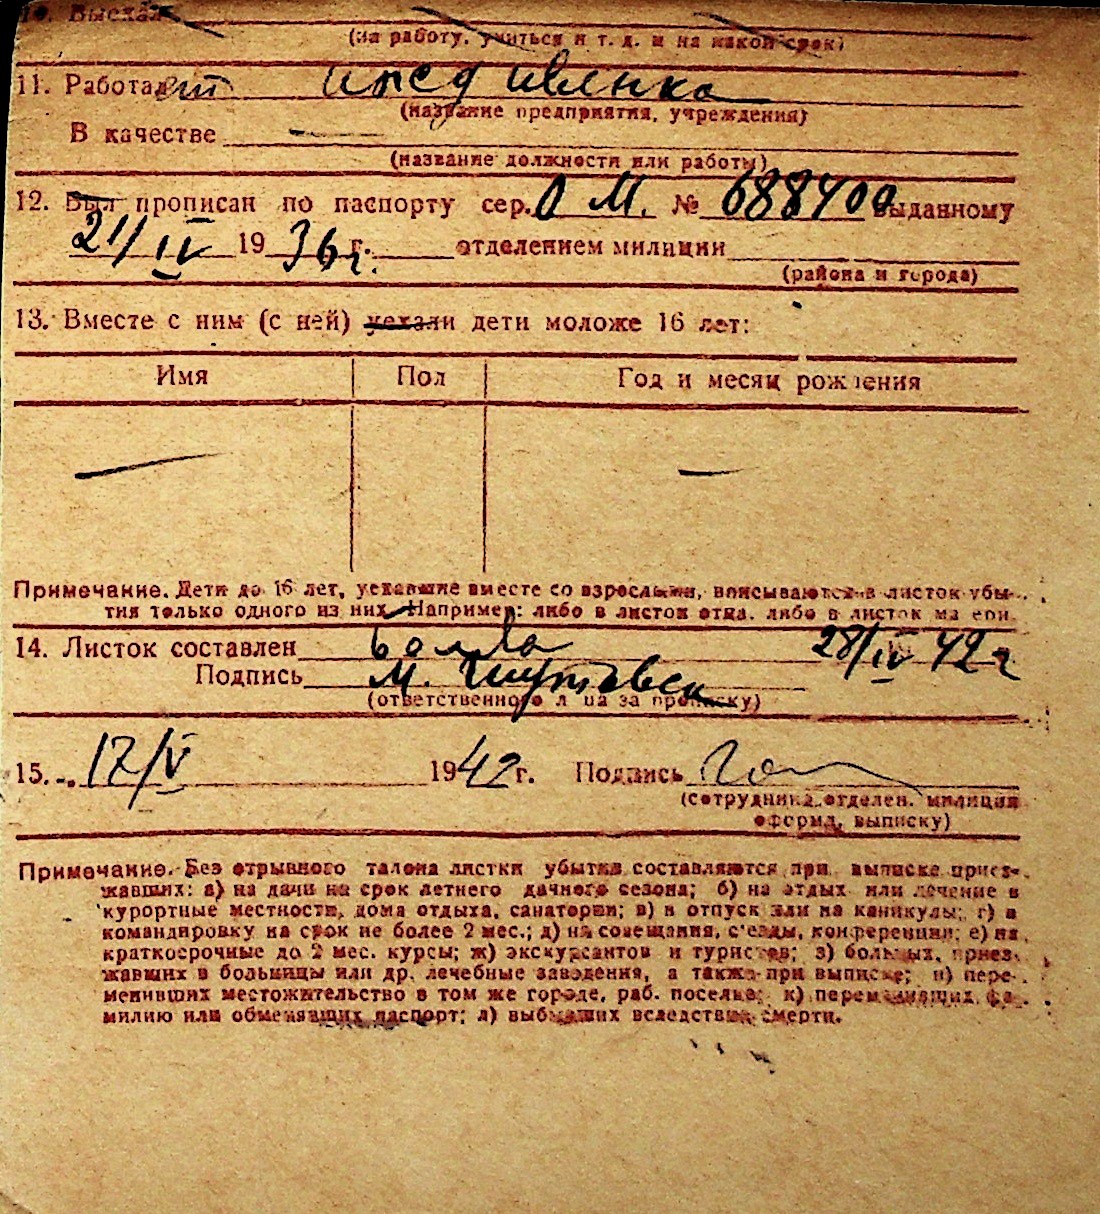 10. Выехал
(на работу, учиться и т. д. и на какой срок)
11. Работает
(название предприятия, учреждения)
В качестве —
(название должности или работы)
12. Был прописан по паспорту сер. О М. № 688400 выданному
21/IV 1936 г. отделением милиции
(района и города)
13. Вместе с ним (с ней) уехали дети моложе 16 лет:
Имя Пол Год и месяц рождения
— —
Примечание. Дети до 16 лет, уехавшие вместе со взрослыми, вписываются в листок убы-
тия только одного из них. Например: либо в листок отца, либо в листок матери.
14. Листок составлен 28/IV 42 г
Подпись М.
(ответственного лица за прописку)
15. „ 17/V 1942 г. Подпись
(сотрудника отделен. милиции
оформл. выписку)
Примечание. Без отрывного талона листки убытия составляются при выписке приез-
жавших: а) на дачи на срок летнего дачного сезона; б) на отдых или лечение в
курортные местности, дома отдыха, санатории; в) в отпуск или на каникулы; г) в
командировку на срок не более 2 мес.; д) на совещания, с'езды, конференции; е) на
краткосрочные до 2 мес. курсы; ж) экскурсантов и туристов; з) больных, приез-
жавших в больницы или др. лечебные заведения, а также при выписке; и) пере-
менивших местожительство в том же городе, раб. поселке; к) переменивших фа-
милию или обменявших паспорт; л) выбывших вследствие смерти.